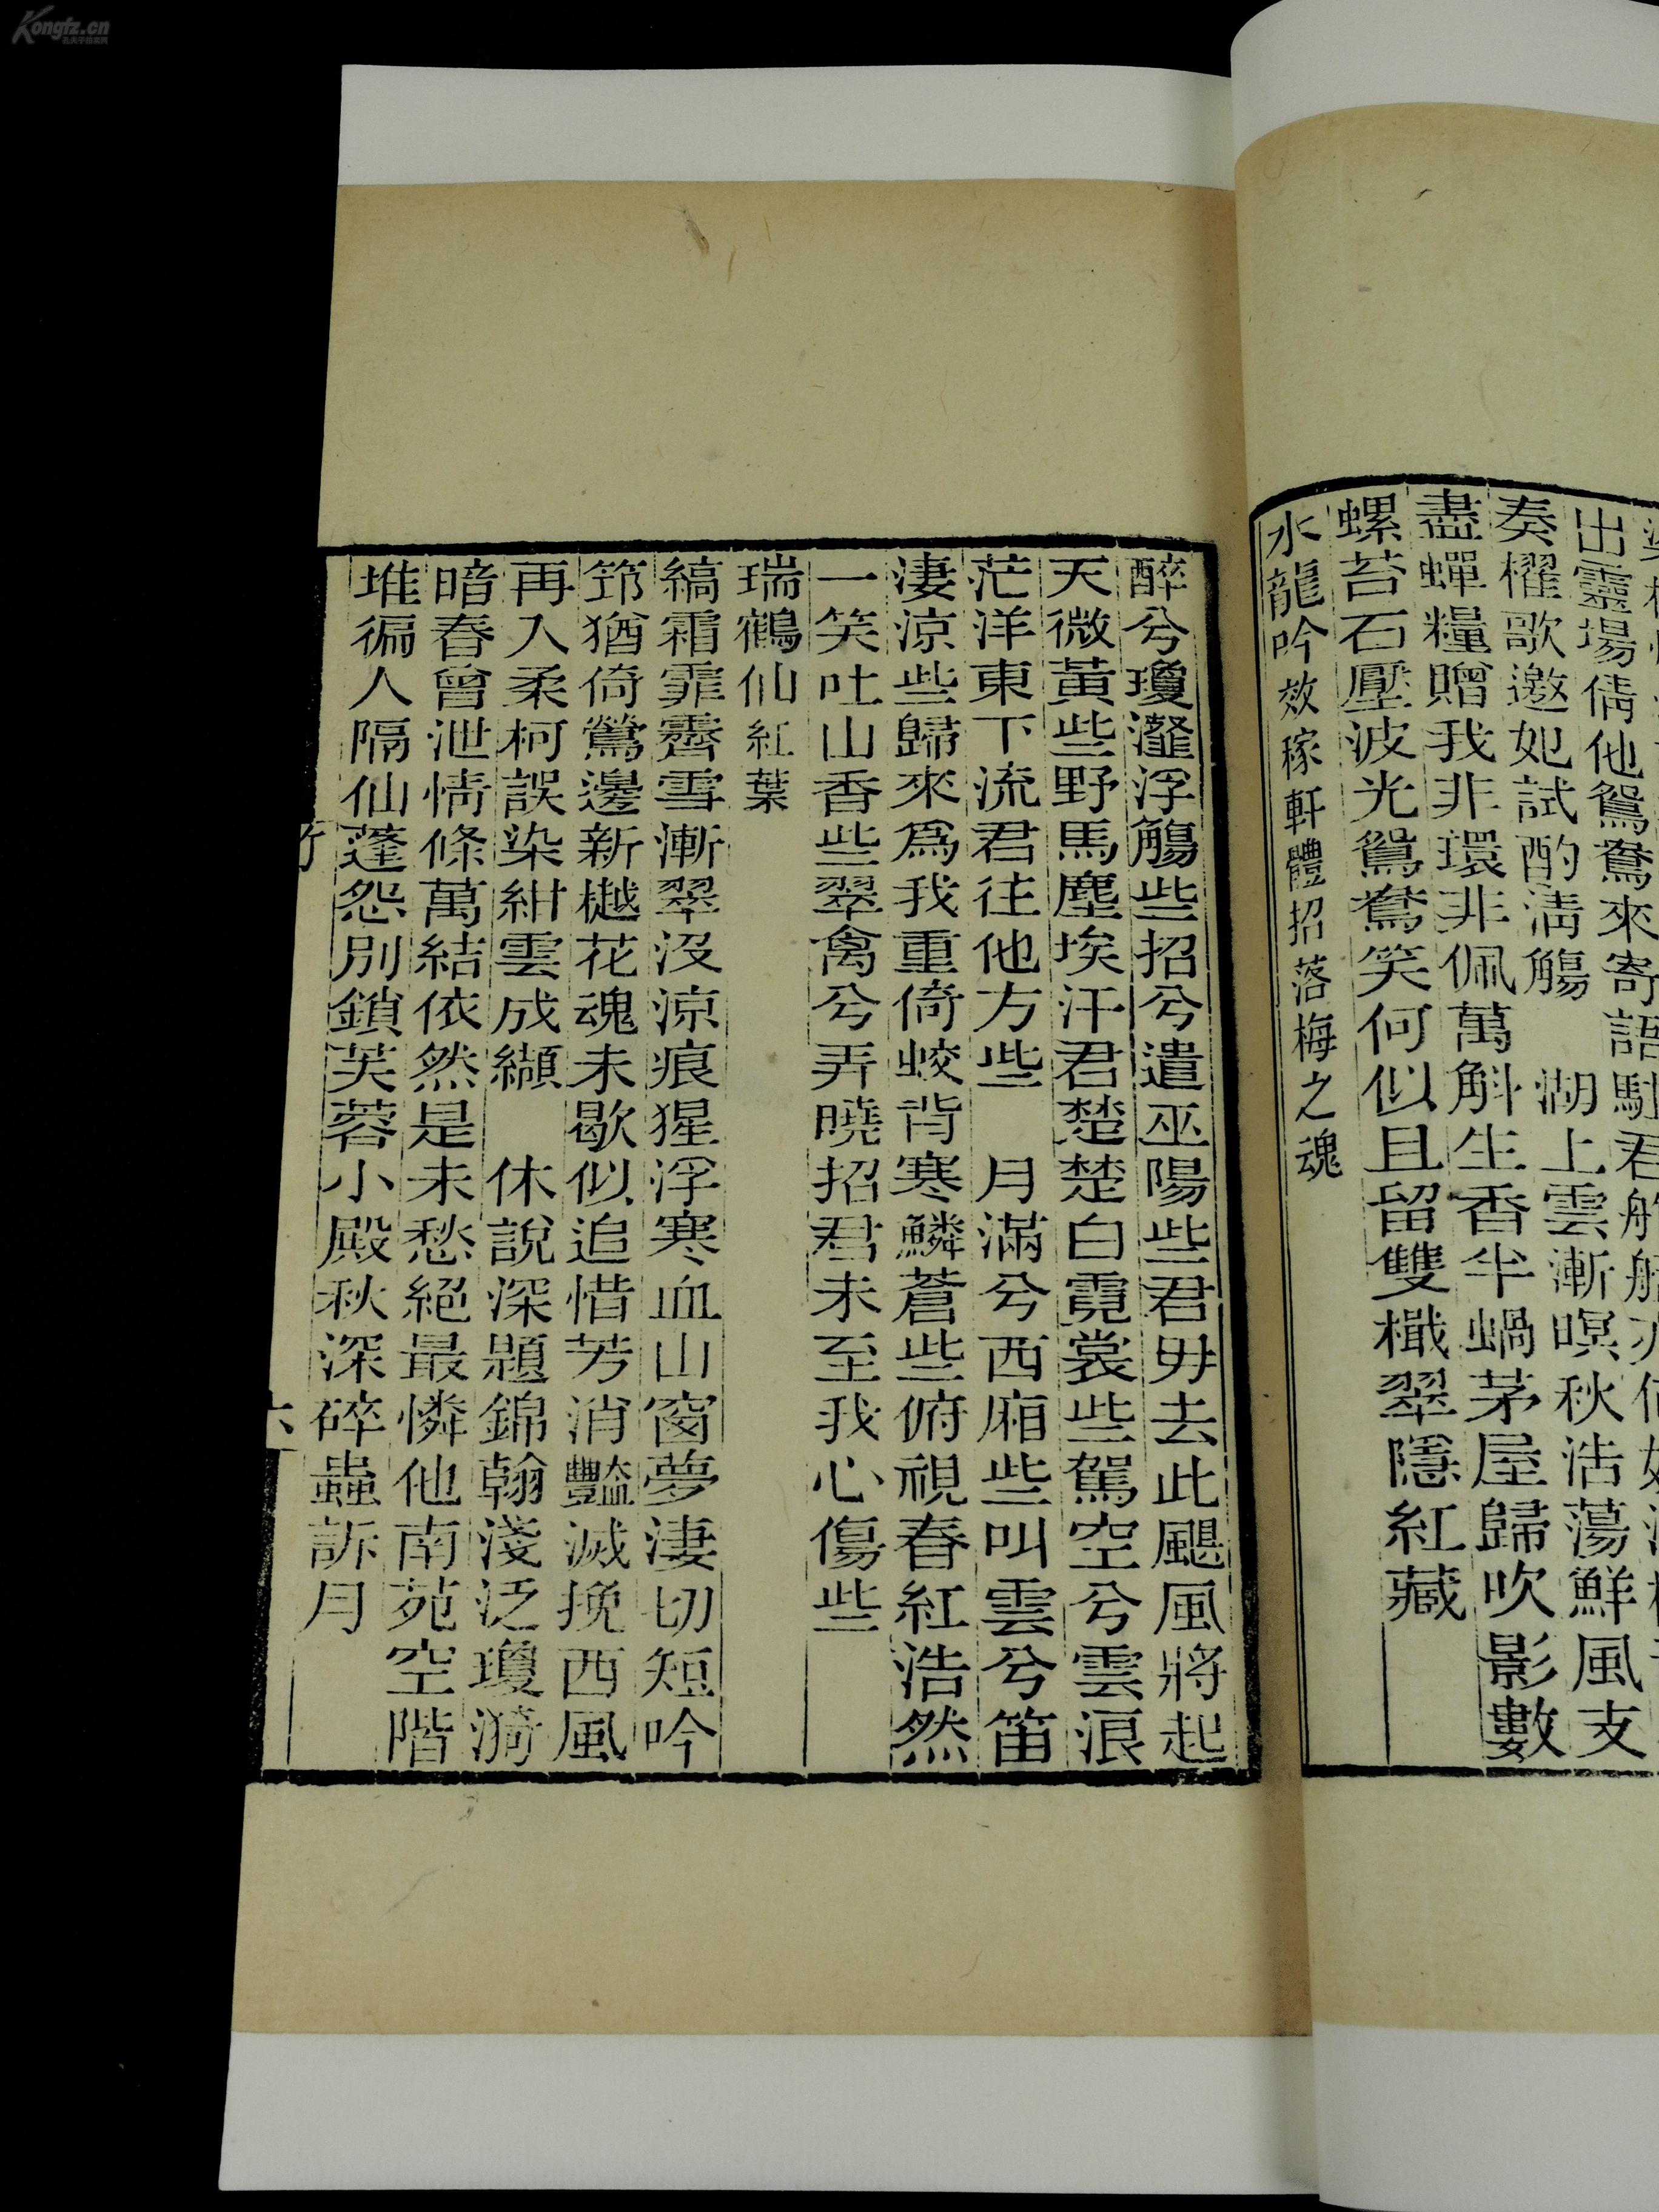 出靈場倩他鴛鴦來寄語駐君
奏櫂歌邀妃試酌淸觴　湖上雲漸暝秋浩蕩鮮風支
盡蟬糧贈我非環非佩萬斛生香半蝸茅屋歸吹影數
螺苔石壓波光鴛鴦笑何似且留雙檝翠隱紅藏
水龍吟效稼軒體招落梅之魂
醉兮瓊瀣浮觴些招兮遣巫陽些君毋去此颶風將起
天微黃些野馬塵埃汗君楚楚白霓裳些駕空兮雲浪
茫洋東下流君往他方些　月滿兮西廂些叫雲兮笛
淒涼些歸來爲我重倚蛟背寒鱗蒼些俯視春紅浩然
一笑吐山香些翠禽兮弄曉招君未至我心傷些
瑞鶴仙紅葉
縞霜霏霽雪漸翠沒涼痕猩浮寒血山窗夢淒切短吟
筇猶倚鶯邊新樾花魂未歇似追惜芳消豔滅挽西風
再入柔柯誤染紺雲成纈　休說深題錦翰淺泛瓊漪
暗春曾泄情條萬結依然是未愁絕最憐他南苑空階
堆徧人隔仙蓬怨別鎖芙蓉小殿秋深碎蟲訴月
竹
六
Kongfz.cn